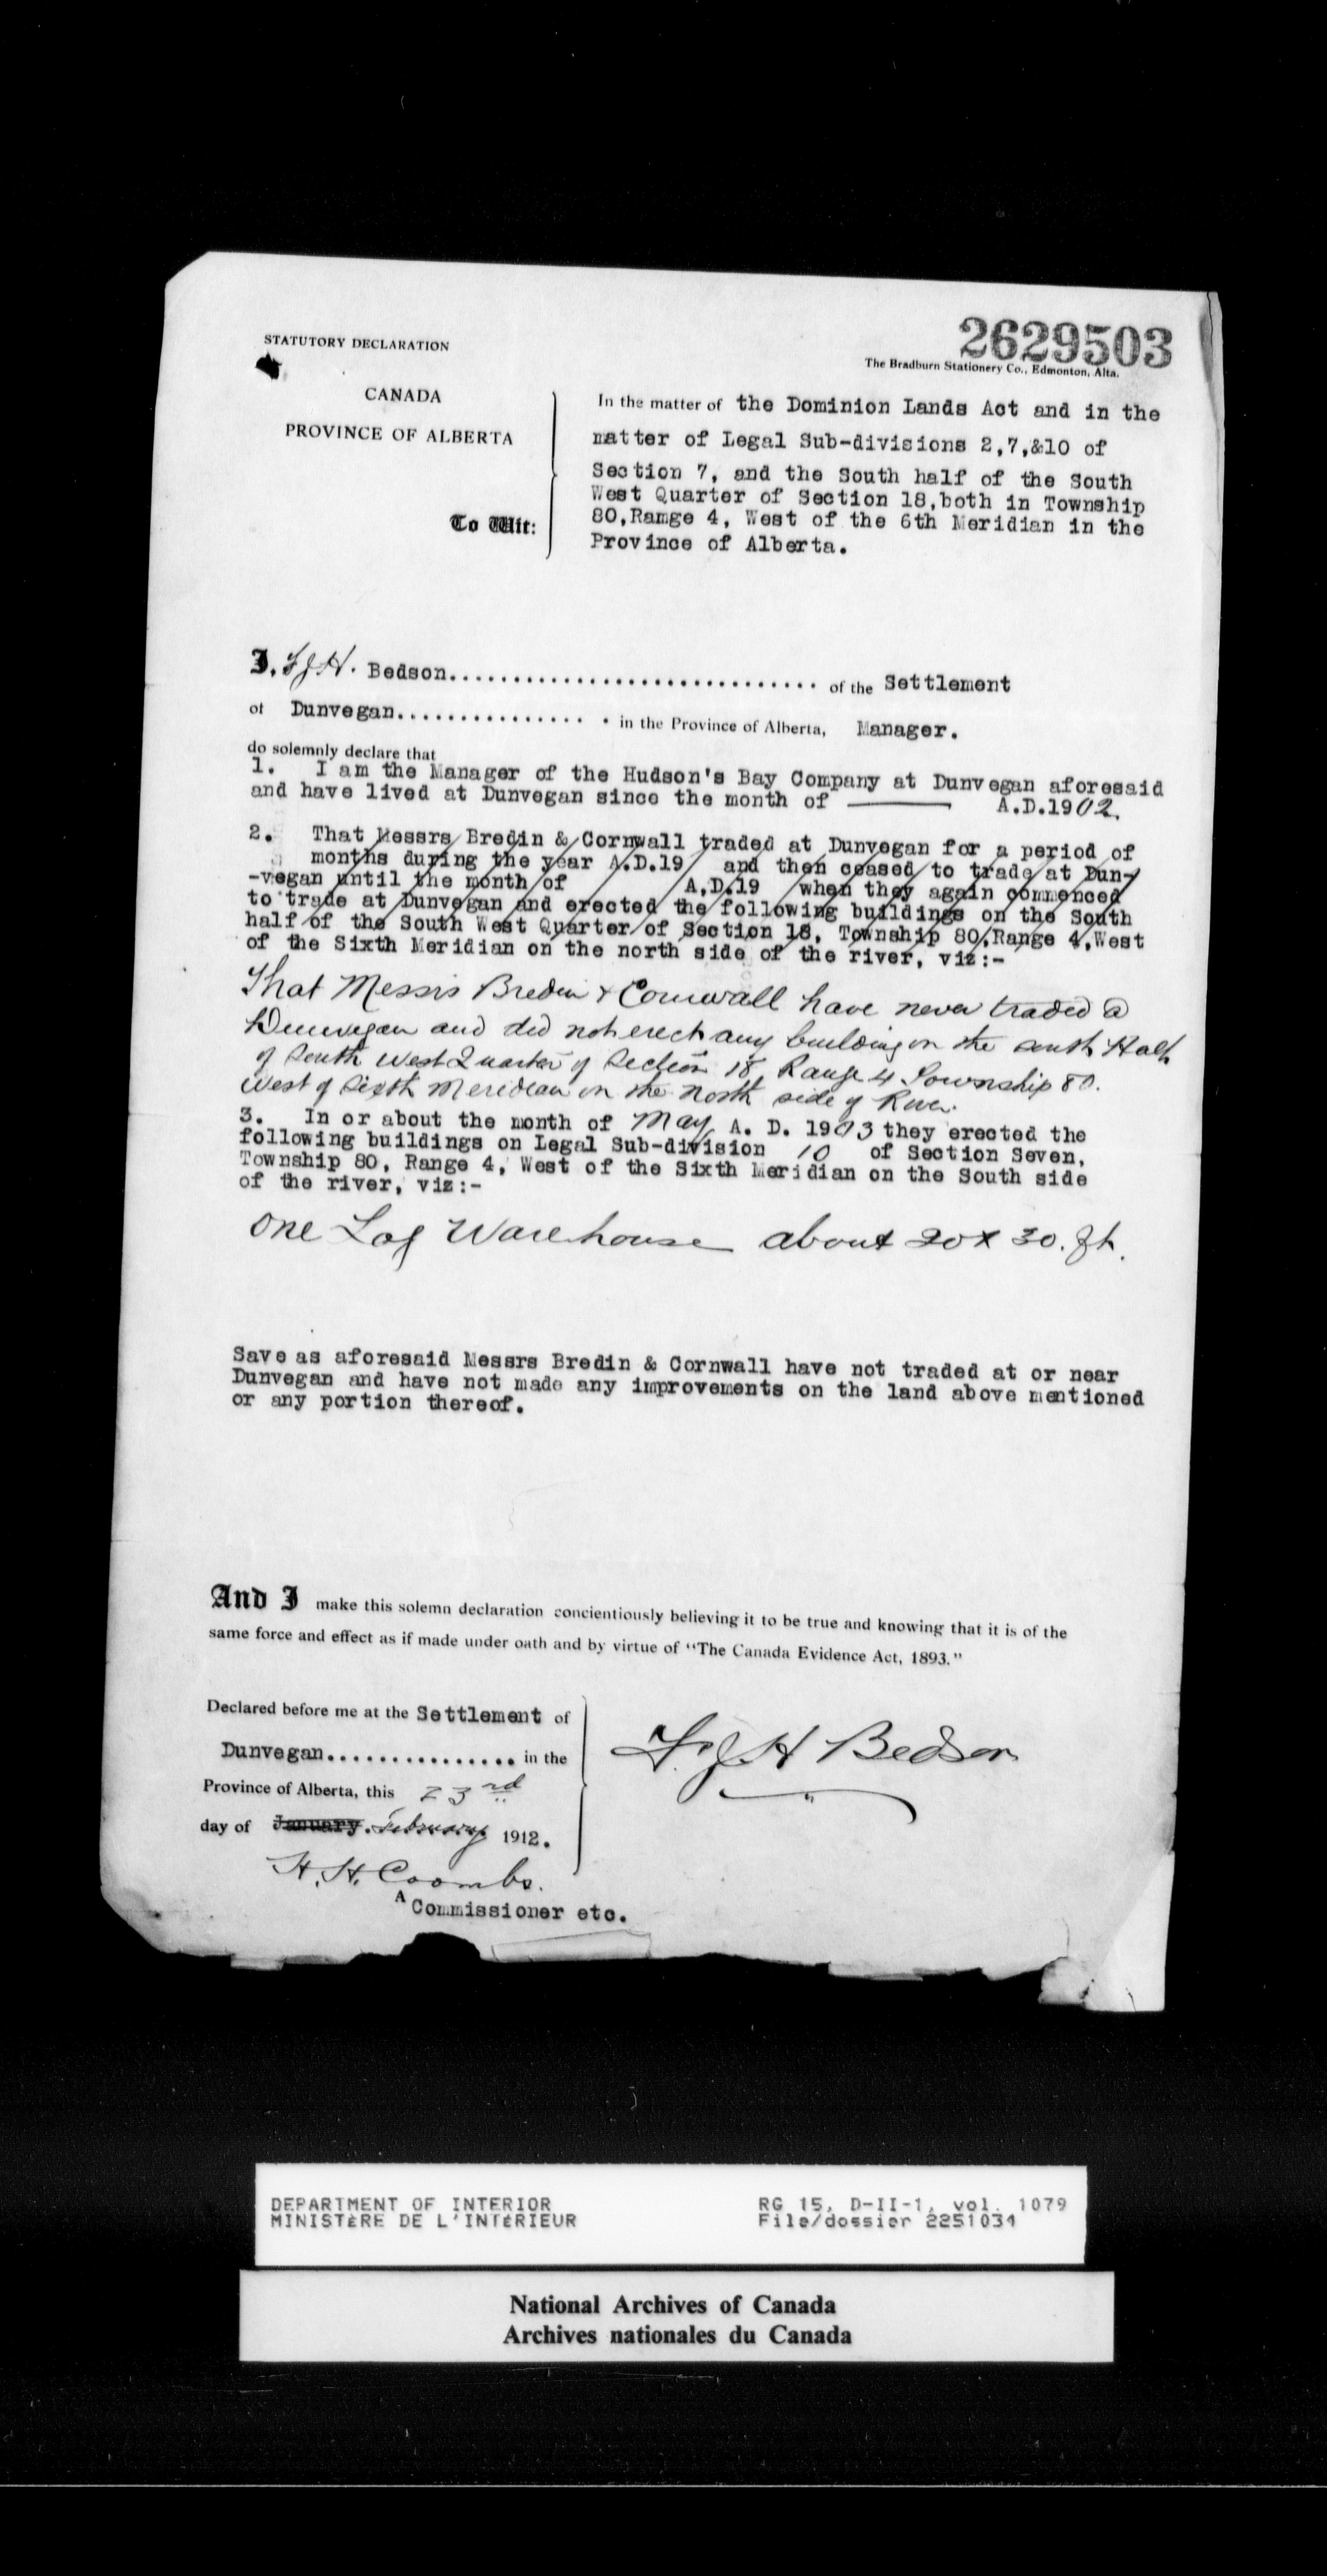 2629503
STATUTORY DECLARATION
The Bradburn Stationery Co., Edmonton, Alta.
CANADA
PROVINCE OF ALBERTA
To Wit:
In the matter of the Dominion Lands Act and in the
matter of Legal Sub-divisions 2,7,&10 of
Section 7, and the South half of the South
West Quarter of Section 18,both in Township
80,Range 4, West of the 6th Meridian in the
Province of Alberta.
I, F J H. Bedson.............................. of the Settlement
of Dunvegan................ in the Province of Alberta, Manager.
do solemnly declare that
1. I am the Manager of the Hudson's Bay Company at Dunvegan aforesaid
and have lived at Dunvegan since the month of ——— A.D.1902.
2. That Messrs Bredin & Cornwall traded at Dunvegan for a period of
months during the year A.D.19 and then ceased to trade at Dun-
-vegan until the month of A.D.19 when they again commenced
to trade at Dunvegan and erected the following buildings on the South
half of the South West Quarter of Section 18, Township 80,Range 4,West
of the Sixth Meridian on the north side of the river, viz:-
That Messrs Bredin & Cornwall have never traded @
Dunvegan and did not erect any building on the south Half
of South West Quarter of Section 18 Range 4 Township 80.
West of Sixth Meridean on the North side of River.
3. In or about the month of May A. D. 1903 they erected the
following buildings on Legal Sub-division 10 of Section Seven,
Township 80, Range 4, West of the Sixth Meridian on the South side
of the river, viz:-
One Log Warehouse about 20 x 30. ft.
Save as aforesaid Messrs Bredin & Cornwall have not traded at or near
Dunvegan and have not made any improvements on the land above mentioned
or any portion thereof.
And I make this solemn declaration concientiously believing it to be true and knowing that it is of the
same force and effect as if made under oath and by virtue of "The Canada Evidence Act, 1893."
Declared before me at the Settlement of
Dunvegan............... in the
Province of Alberta, this 23rd
day of January. February 1912.
F. J. H Bedson
H. H. Coombs.
A Commissioner etc.
DEPARTMENT OF INTERIOR
MINISTÈRE DE L'INTÉRIEUR
RG 15, D-II-1, vol. 1079
File/dossier 2251034
National Archives of Canada
Archives nationales du Canada